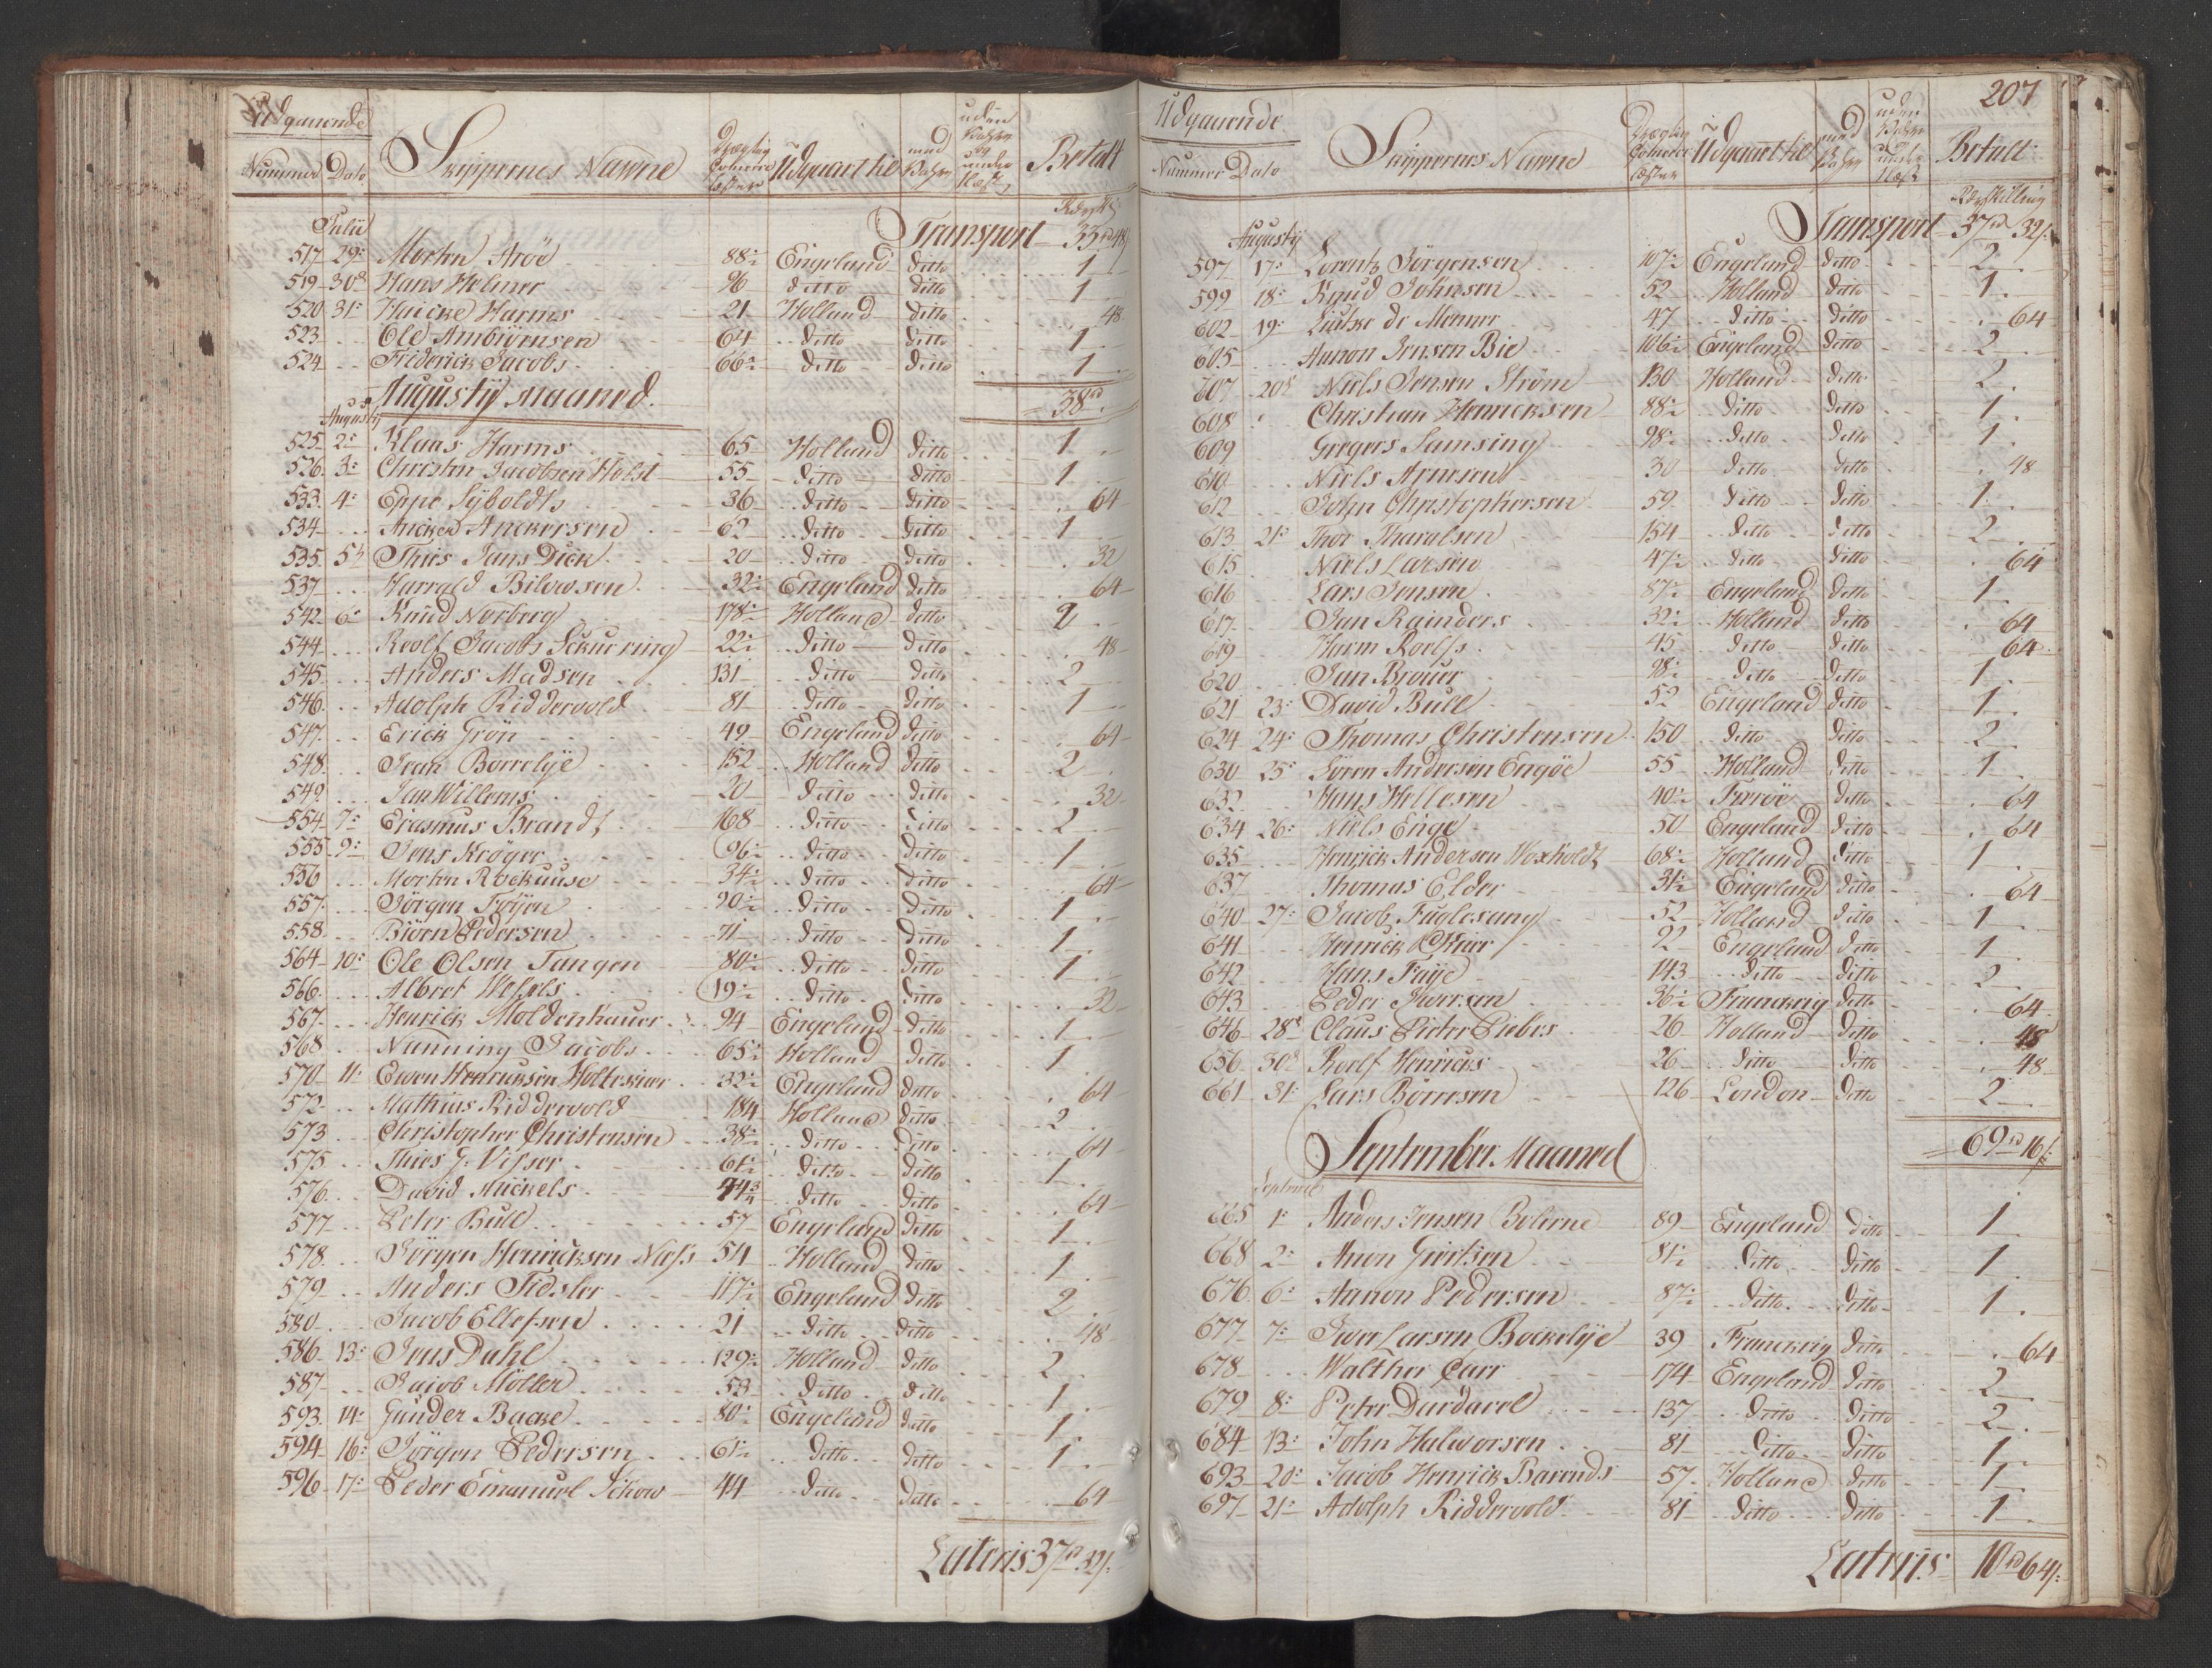 Udgaaende
Nummer Dato Skippernes Nawne Drægtig Comerce Læster Udgaaet til med Bahre uden Bahre og under Ræft Betalt
Transport 33 rd 48
Julii
517 29: Morten Aröe 88½ Engeland ditto 1
519 30 Hans Helmer 96 ditto ditto 1
520 31: Haicke Harms 21 Holland ditto 48
523 Ole Ambiörnsen 64 ditto ditto 1
524 Friderick Jacobs 66½ ditto ditto 1
38 rd
Augustij Maaned
Augustij
525 2: Klaas Harms 65 Holland ditto 1
526 3: Christen Jacobsen Holst 55 ditto ditto 1
533 4: Eppe Sÿboldts 36 ditto ditto 64
534 Ancker Anckersen 62 ditto ditto 1
535 5 Thies Jans Dick 20 ditto ditto 32
537 Harrald Bilowsen 32½ Engeland ditto 64
542 6: Knud Norberg 178½ Holland ditto 2
544 Roolf Jacobs Schuering 22½ ditto ditto 48
545 Anders Madsen 131 ditto ditto 2
546 Adolph Riddervold 81 ditto ditto 1
547 Erick Grön 49 Engeland ditto 64
548 Iwan Borrelÿe 152 Holland ditto 2
549 Jan Willems 20 ditto ditto 32
554 7: Erasmus Brandt 168 ditto ditto 2
555 9: Jens Kröger 96½ ditto ditto 1
556 Morten Rockuuse 34½ ditto ditto 64
557 Jörgen Föÿen 90½ ditto ditto 1
558 Biörn Pedersen 71 ditto ditto 1
564 10: Ole Olsen Tangen 80½ ditto ditto 1
566 Albret Wessels 19½ ditto ditto 32
567 Henrick Moldenhauer 94 Engeland ditto 1
568 Nanning Jacobs 65½ Holland ditto 1
570 11: Ewen Henricksen Holtesiier 32½ Engeland ditto 64
572 Mathias Riddervold 184 Holland ditto 2
573 Christopher Christensen 38½ ditto ditto 64
575 Thies G: Visser 61½ ditto ditto 1
576 David Mickels 44¾ ditto ditto 64
577 Peter Bull 57 Engeland ditto 1
578 Jörgen Henricksen Næss 54 Holland ditto 1
579 Anders Fidsler 117½ Engeland ditto 2
580 Jacob Ellefsen 21 ditto ditto 48
586 13: Jens Dahl 129½ Holland ditto 2
587 Jacob Möller 53 ditto ditto 1
593 14: Gunder Backe 80½ Engeland ditto 1
594 16: Jörgen Pedersen 61½ ditto ditto 1
596 17: Peder Emanuel Schow 44 ditto ditto 64
Lateris 37 rd 32 s:
207
Udgaaende
Nummer Dato Skippernes Nawne Drægtig Comerce Læster Udgaaet til med Bahre uden Bahre under Ræft Betalt
Rdr Skilling
Transport 37 rd 32 s:
Augustij
597 17: Lorentz Jörgensen 107½ Engeland ditto 2
599 18: Knud Johnsen 52 Holland ditto 1
602 19: Luitze de Memmer 47 ditto ditto 64
605 Aanon Jensen Bie 106½ Engeland ditto 2
607 20 Niels Jensen Ström 130 Holland ditto 2
608 Christian Henricksen 88½ ditto ditto 1
609 Gregers Samsing 98½ ditto ditto 1
610 Niels Arnesen 30 ditto ditto 48
612 John Christophersen 59 ditto ditto 1
613 21: Thor Tharalsen 154 ditto ditto 2
615 Niels Larsen 47½ ditto ditto 64
616 Lars Jensen 87½ Engeland ditto 1
617 Jan Rainders 32½ Holland ditto 64
619 Harm Roelfs 45 ditto ditto 64
620 Jan Brouer 98½ ditto ditto 1
621 23: David Bull 52 Engeland ditto 1
624 24: Thomas Christensen 150 ditto ditto 2
630 25: Sören Andersen Engöe 55 Holland ditto 1
632 Hans Hellesen 40½ Færöe ditto 64
634 26: Niels Enge 50 Engeland ditto 64
635 Henrick Andersen Woxholdt 68½ Holland ditto 1
637 Thomas Elder 31½ Engeland ditto 64
640 27: Jacob Fuglesang 52 Holland ditto 1
641 Henrick Kiær 92 Engeland ditto 1
642 Hans Faÿe 143 ditto ditto 2
643 Peder Iwersen 36½ Franckrig ditto 64
646 28 Claus Pieter Piebes 26 Holland ditto 48
656 30 Roelf Henricks 26 ditto ditto 48
661 31: Lars Börresen 126 London ditto 2
69 rd 16 s:
September Maaned
Septembr
665 1: Anders Jensen Bolerne 89 Engeland ditto 1
668 2: Anon Giertsen 81½ ditto ditto 1
676 6: Aanon Pedersen 87½ ditto ditto 1
677 7: Iwer Larsen Bockelÿe 39 Franckrig ditto 64
678 Walther Carr 174 Engeland ditto 2
679 8: Peter Dardavel 137 ditto ditto 2
684 13: John Halworsen 81 ditto ditto 1
693 20: Jacob Henrick Barends 57 Holland ditto 1
697 21: Adolph Riddervold 81 ditto ditto 1
Lateris 10 rd 64 s: